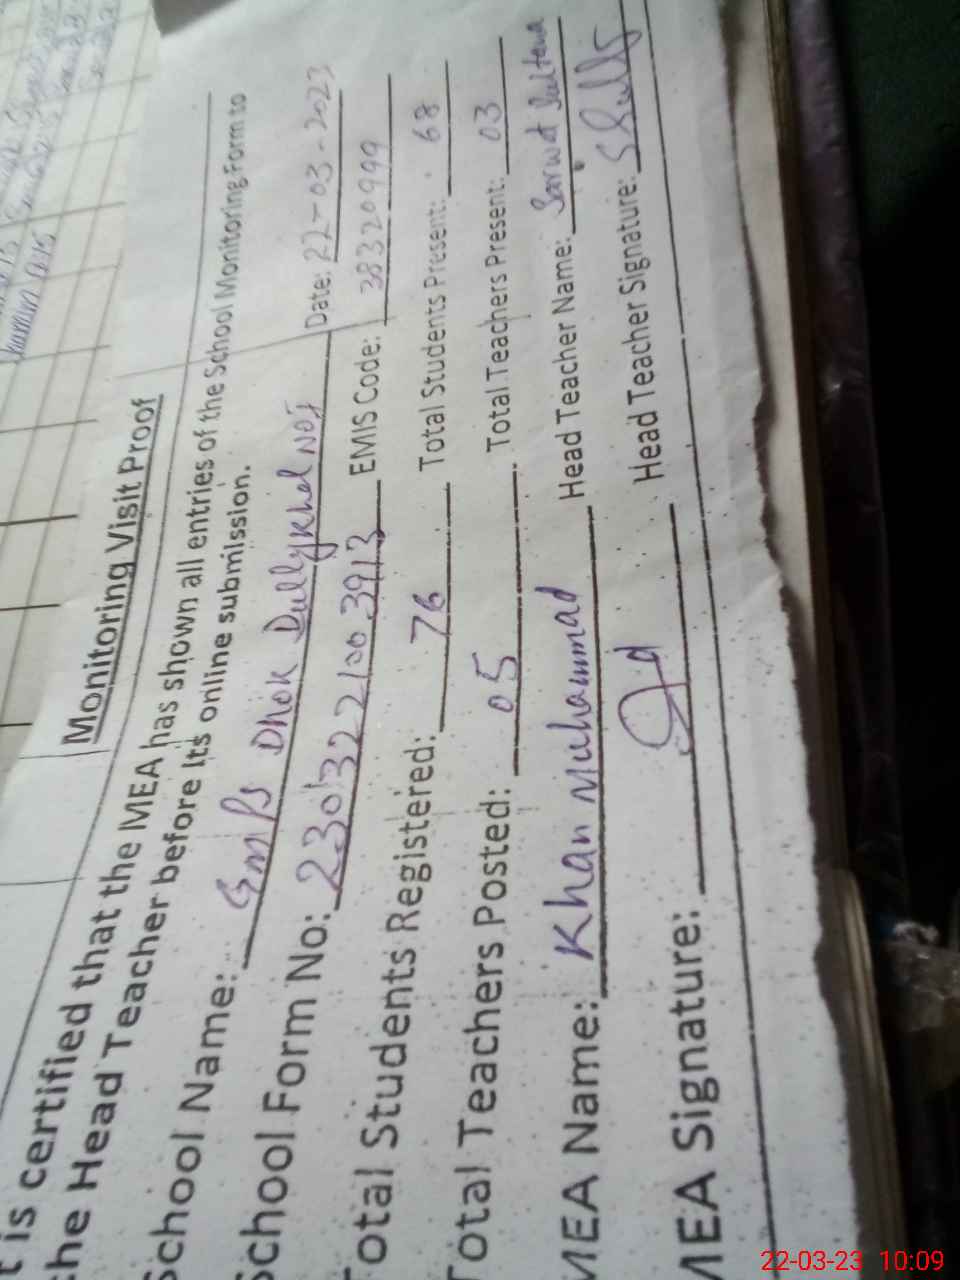 Monitoring Visit Proof
t is certified that the MEA has shown all entries of the School Monitoring Form to
the Head Teacher before its online submission.
School Name: GMPS Dhok Dullykhel No1 Date: 22-03-2023
School Form No: 2301322100 3913 EMIS Code: 38320999
Total Students Registered: 76 Total Students Present: 68
Total Teachers Posted: 05 Total Teachers Present: 03
MEA Name: Khan Muhammad Head Teacher Name: Sarwat Sultana
MEA Signature: Head Teacher Signature:
22-03-23 10:09